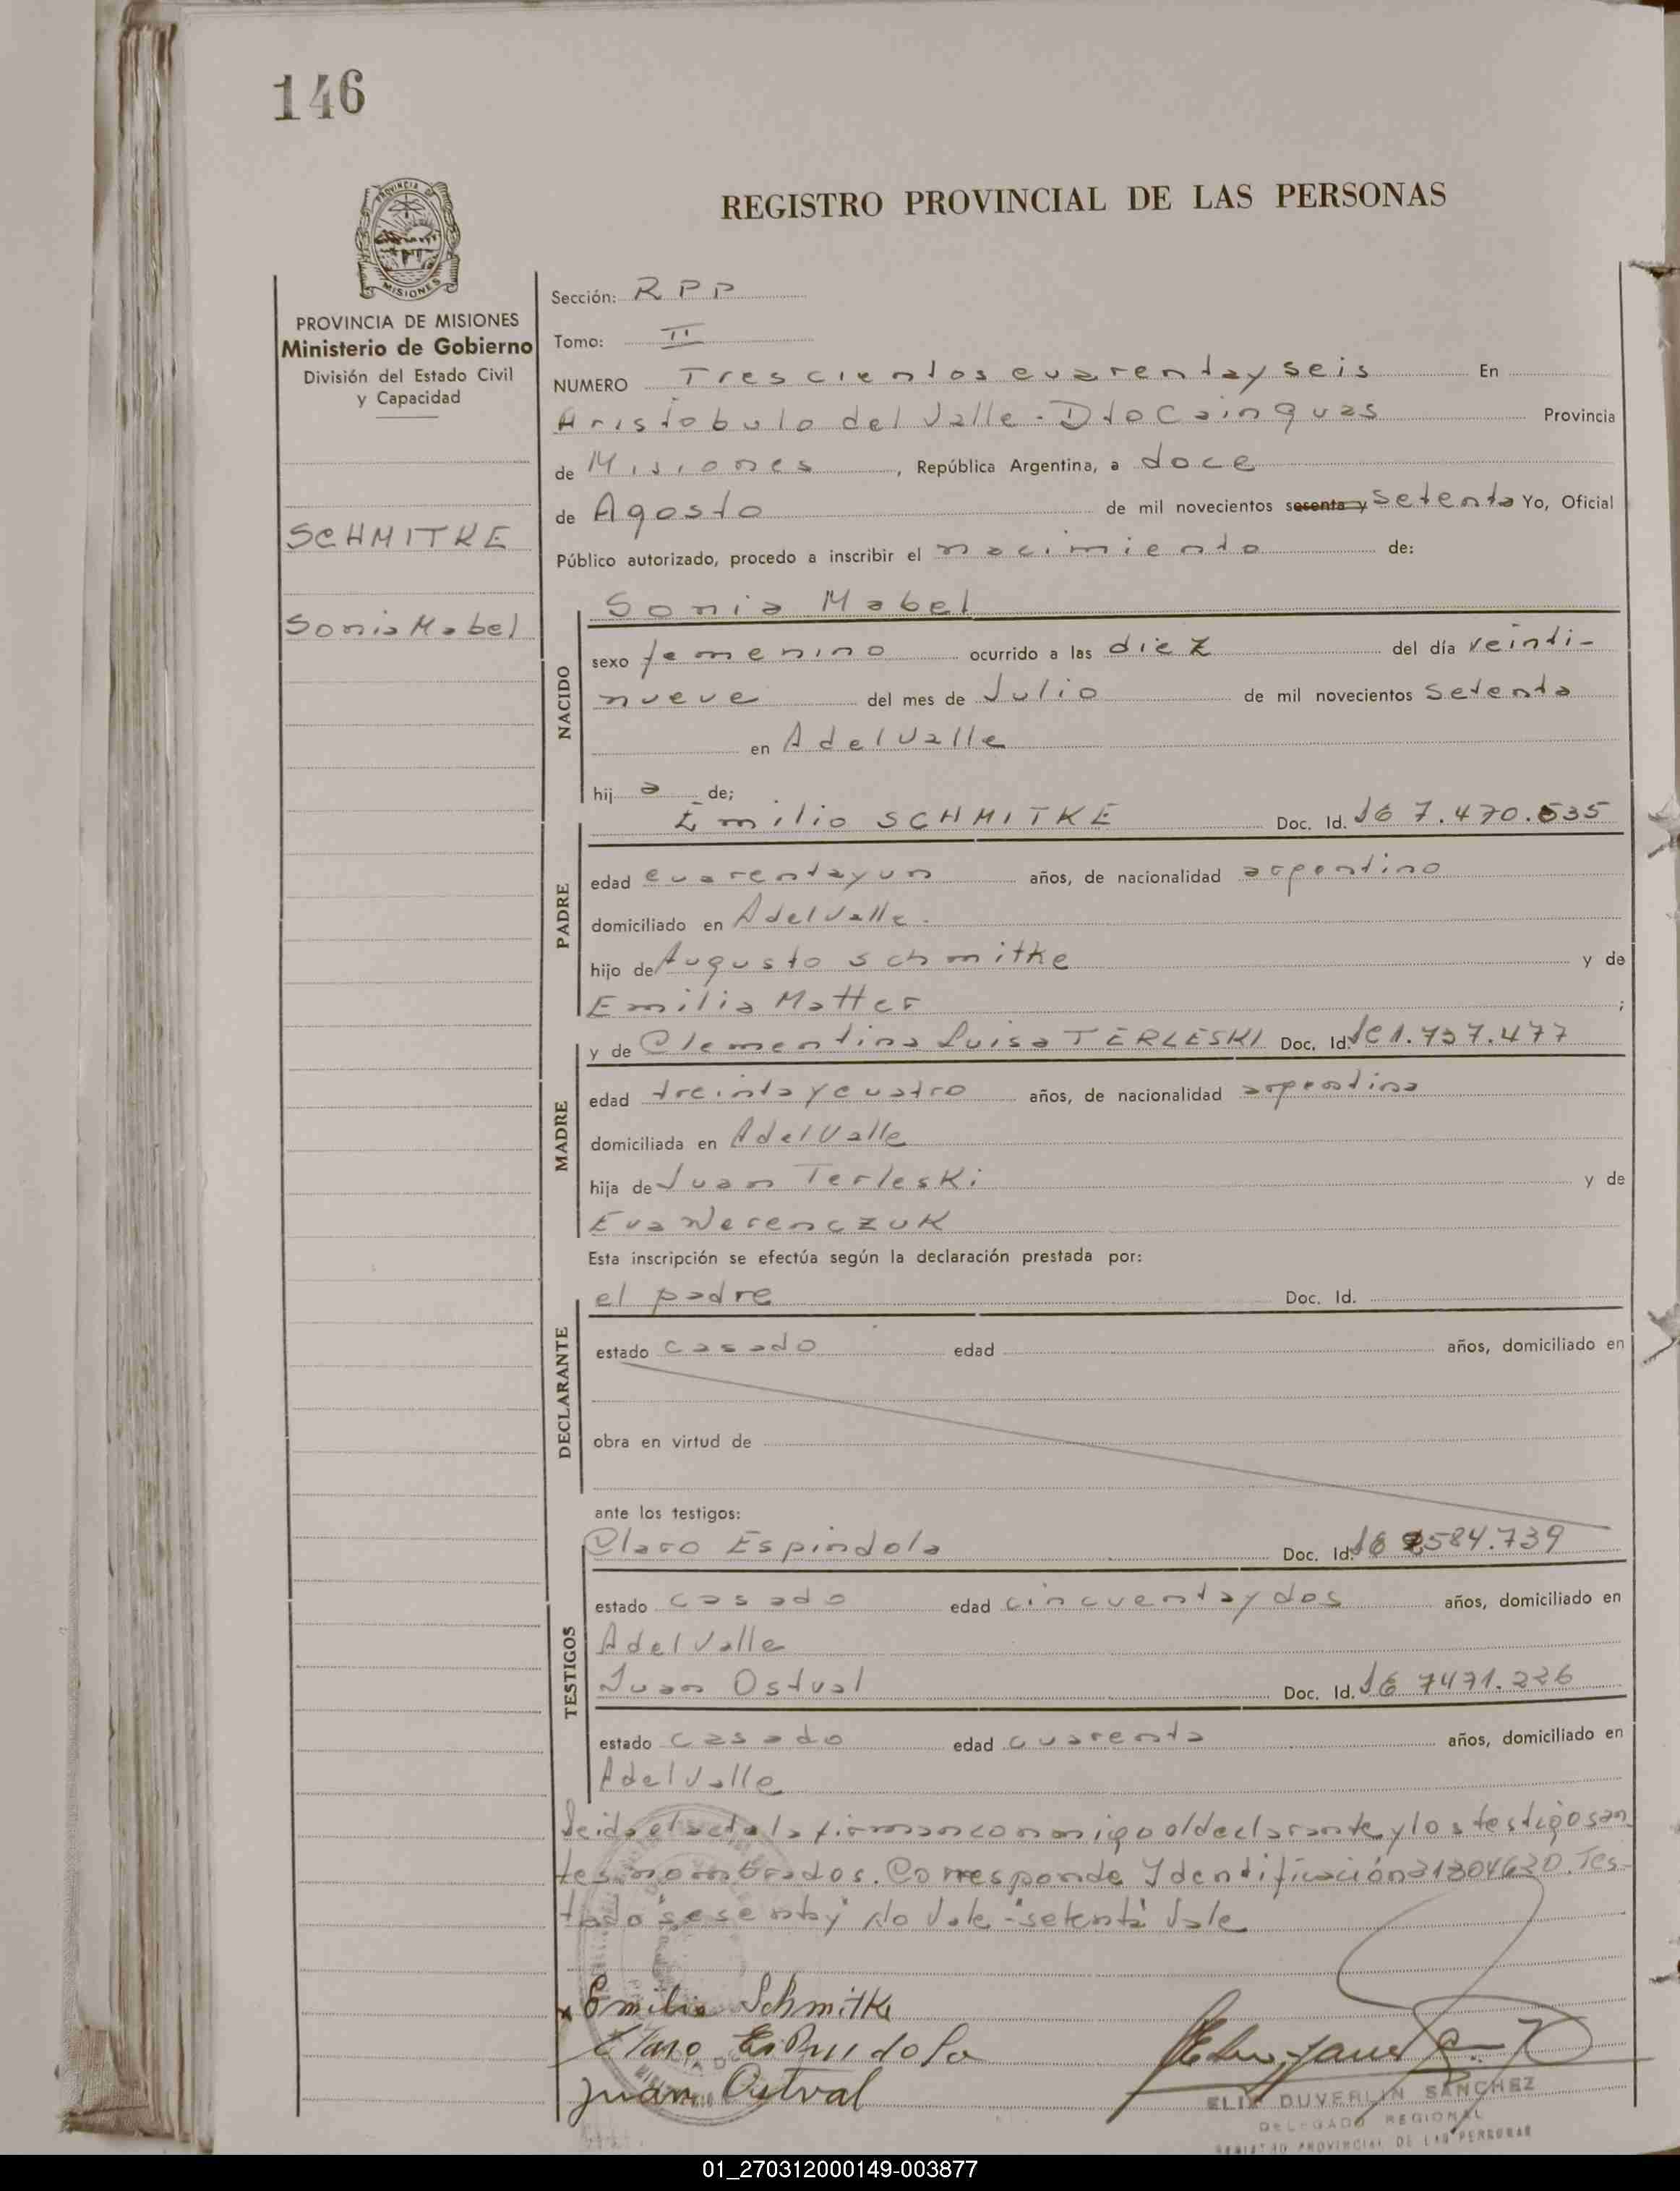 146
PROVINCIA DE
MISIONES
PROVINCIA DE MISIONES
Ministerio de Gobierno
División del Estado Civil
y Capacidad
SCHMITKE
Sonia Mabel
REGISTRO PROVINCIAL DE LAS PERSONAS
Sección: RPP
Tomo: II
NUMERO Trescientos cuarenta y seis En
Aristobulo del Valle - Dto Cainguas Provincia
de Misiones, República Argentina, a doce
de Agosto de mil novecientos sesenta y setenta Yo, Oficial
Público autorizado, procedo a inscribir el nacimiento de:
Sonia Mabel
NACIDO
sexo femenino ocurrido a las diez del día veinti-
nueve del mes de Julio de mil novecientos setenta
en A del Valle
hij a de;
Emilio SCHMITKE Doc. Id. 7.470.535
PADRE
edad cuarenta y un años, de nacionalidad argentino
domiciliado en A del Valle.
hijo de Augusto Schmitke y de
Emilia Matter ;
y de Clementina Luisa TERLESKI Doc. Id. 1.737.477
MADRE
edad treinta y cuatro años, de nacionalidad argentina
domiciliada en A del Valle
hija de Juan Terleski y de
Eva Werenczuk
Esta inscripción se efectúa según la declaración prestada por:
el padre Doc. Id.
DECLARANTE
estado casado edad años, domiciliado en
obra en virtud de
ante los testigos:
Claro Espindola Doc. Id. 584.739
TESTIGOS
estado casado edad cincuenta y dos años, domiciliado en
A del Valle
Juan Ostval Doc. Id. 7471.226
estado casado edad cuarenta años, domiciliado en
A del Valle
Leida el acta la firman conmigo el declarante y los testigos an
tes nombrados. Corresponde Ydentificación 31304630. Tes-
tado "sesenta y" No Vale - "setenta" Vale
Emilio Schmitke
Claro Espindola
Juan Ostval
ELIX DUVERLIN SANCHEZ
DELEGADO REGIONAL
REGISTRO PROVINCIAL DE LAS PERSONAS
01_270312000149-003877